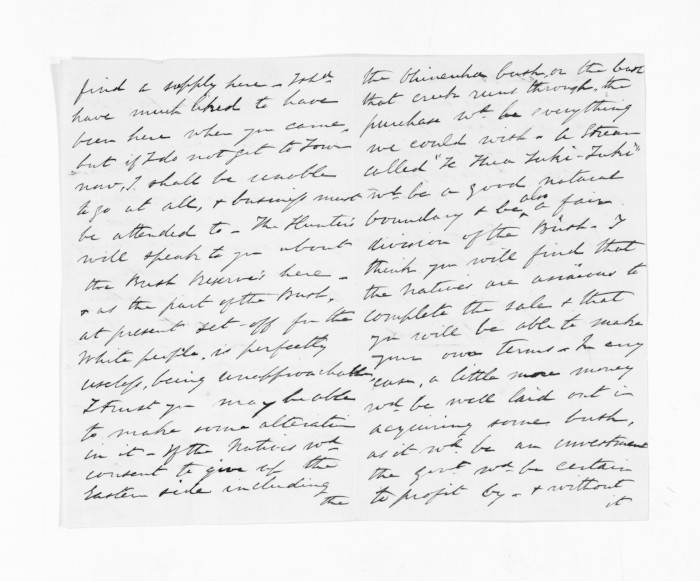 find a supply here - I shd
have much liked to have
been here when you came,
but if I do not get to Town
now, I shall be unable
to go at all, & business must
be attended to - The Hunters
will speak to you about
the Bush Reserves here -
& as the part of the Bush,
at present set-off for the
White people, is perfectly
useless, being unapproachable,
I trust you may be able
to make some alteration
in it - If the Natives wd
consent to give up the
Eastern side including
the
the bush, or the base
that creek runs through, the
purchase wd be everything
we could wish - A Stream
called "Te Hua Tuki-Tuki"
wd be a good natural
boundary & be also a fair
division of the Bush - I
think you will find that
the Natives are anxious to
complete the sale & that
you will be able to make
your own terms - In any
case, a little more money
wd be well laid out in
acquiring some bush,
as it wd be an investment
the govt wd be certain
to profit by - & without
it